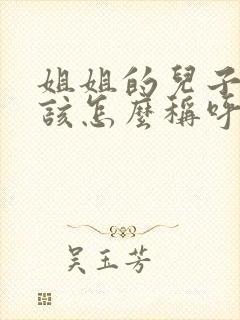 姐姐的兒子
該怎麼稱呼
吳玉芳